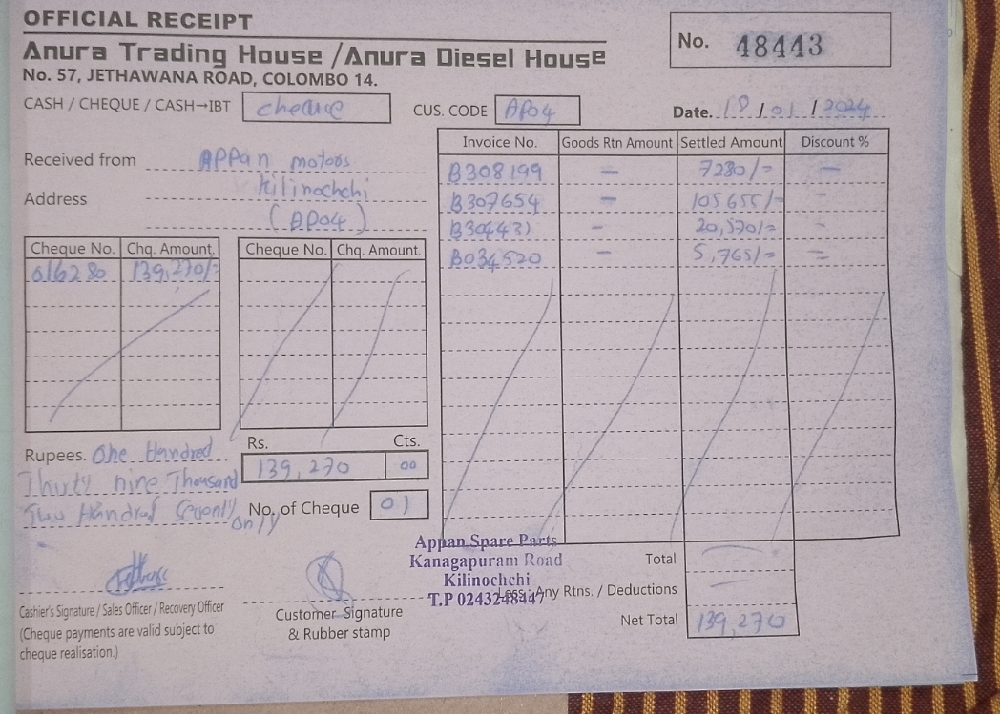 OFFICIAL RECEIPT
Anura Trading House /Anura Diesel House
No. 57, JETHAWANA ROAD, COLOMBO 14.
No. 48443
CASH / CHEQUE / CASH→IBT cheque
CUS. CODE AP04
Date. /01/2024
Received from APPan motors
Address Kilinochchi
(AP04)
Invoice No. Goods Rtn Amount Settled Amount Discount %
B308199 – 7280/= –
B307654 – 105655/- –
– 20,570/= –
B034520 – 5,765/= –
Cheque No. Chq. Amount. Cheque No. Chq. Amount.
616280 139,270/=
Rupees. One Hundred
Thirty nine Thousand
Two Hundred Seventy
only
Rs. Cts.
139,270 00
No. of Cheque 01
Appan Spare Parts
Kanagapuram Road
Kilinochchi
T.P 0243248447
Total –
Less: Any Rtns. / Deductions –
Net Total 139,270
Cashier's Signature / Sales Officer / Recovery Officer
(Cheque payments are valid subject to
cheque realisation.)
Customer Signature
& Rubber stamp